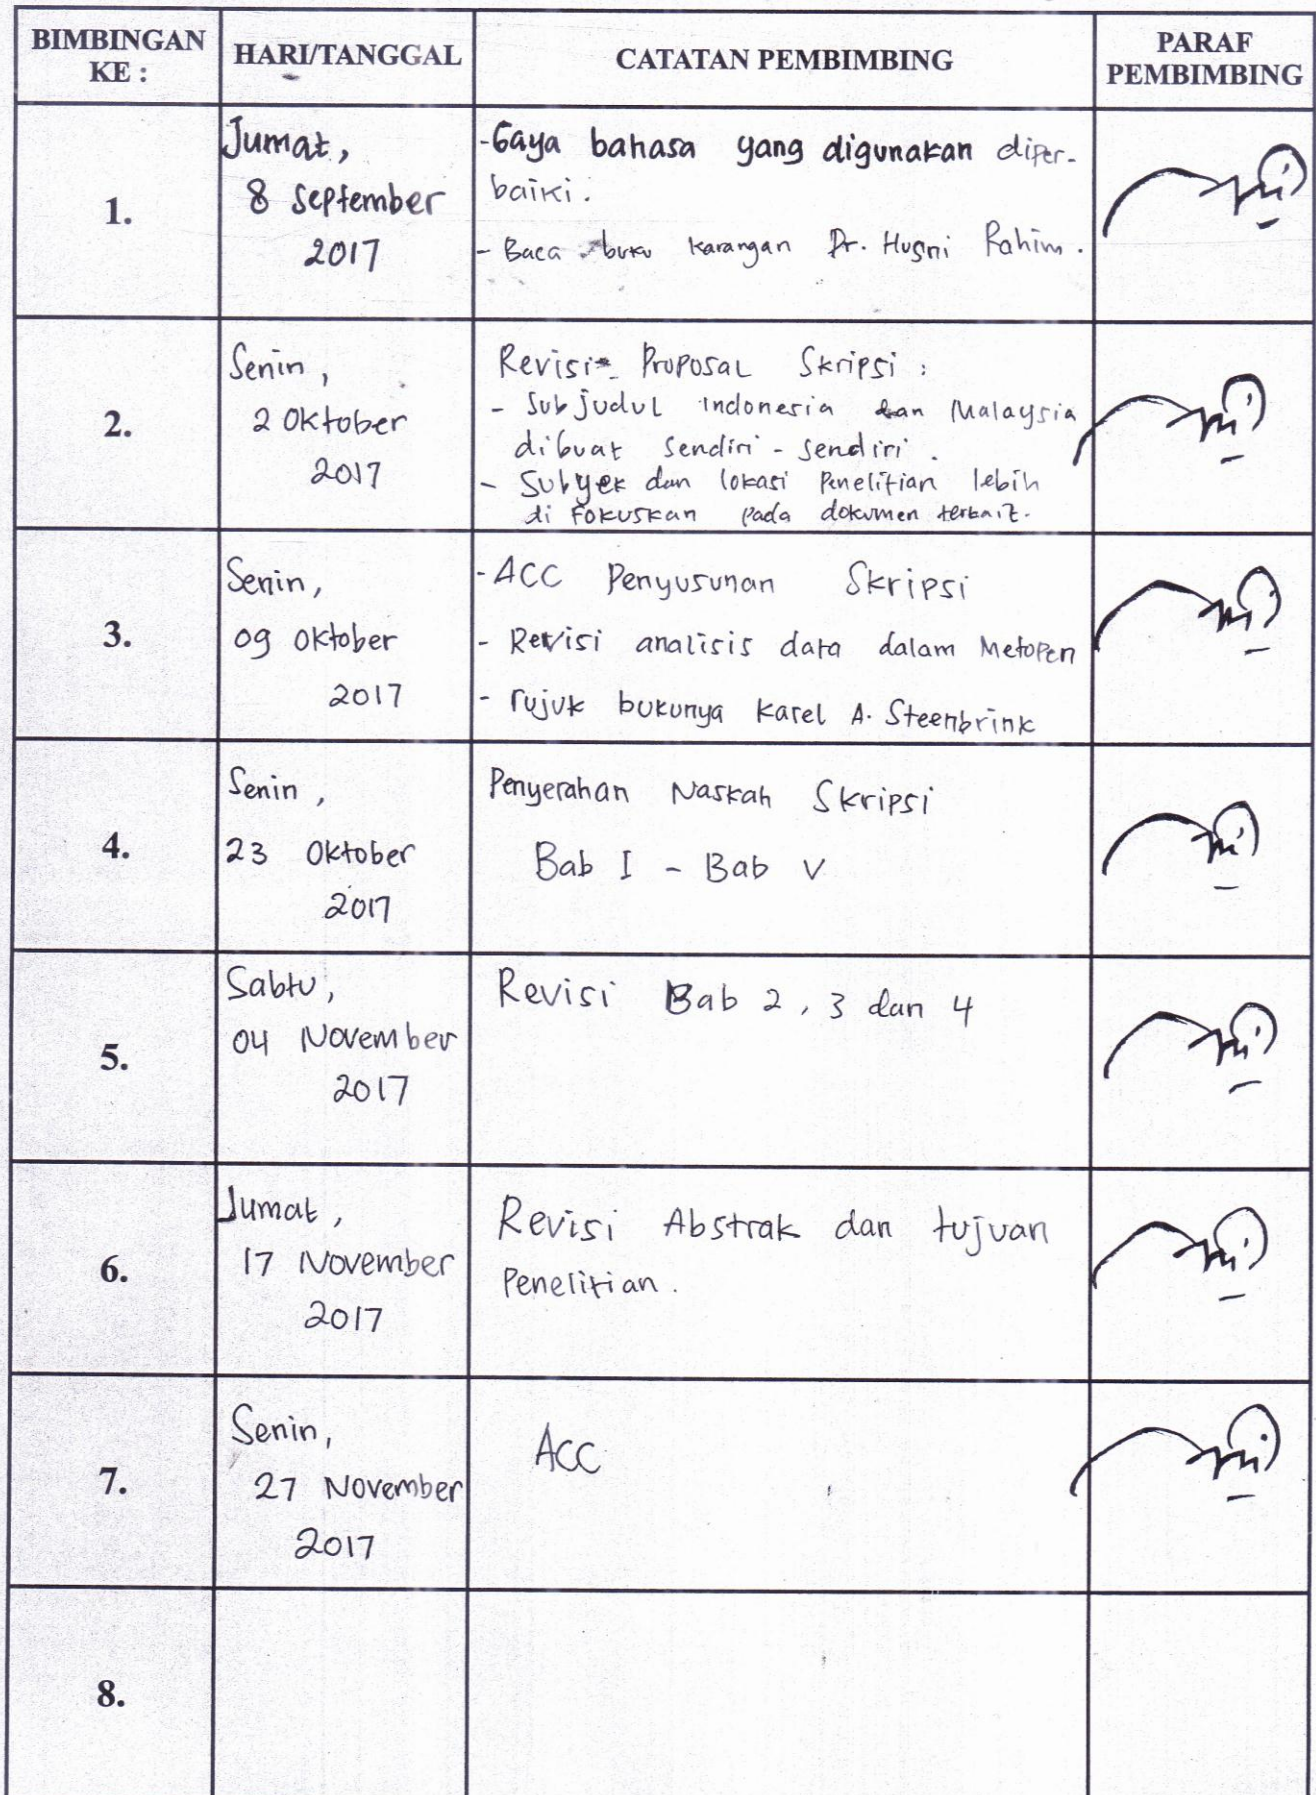 BIMBINGAN KE :
HARI/TANGGAL
CATATAN PEMBIMBING
PARAF PEMBIMBING
1.
Jumat,
8 September
2017
- Gaya bahasa yang digunakan diper-
baiki.
- Baca buku karangan Dr. Husni Rahim.
2.
Senin,
2 Oktober
2017
Revisi Proposal Skripsi :
- Sub judul Indonesia dan Malaysia
dibuat sendiri - sendiri.
- Subyek dan lokasi Penelitian lebih
di Fokuskan pada dokumen terkait.
3.
Senin,
09 Oktober
2017
- ACC Penyusunan Skripsi
- Revisi analisis data dalam Metopen
- rujuk bukunya Karel A. Steenbrink
4.
Senin,
23 Oktober
2017
Penyerahan Naskah Skripsi
Bab I - Bab V
5.
Sabtu,
04 November
2017
Revisi Bab 2, 3 dan 4
6.
Jumat,
17 November
2017
Revisi Abstrak dan tujuan
Penelitian.
7.
Senin,
27 November
2017
ACC
8.